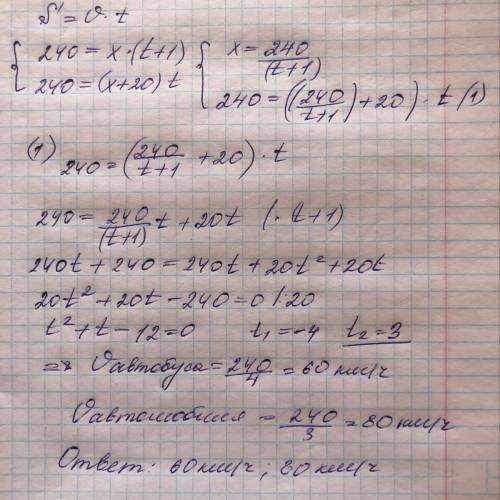 S = v · t
{ 240 = x · (t+1) { x = 240/(t+1)
240 = (x+20) t 240 = ((240/t+1) + 20) · t (1)
(1) 240 = (240/t+1 + 20) · t
240 = 240/(t+1) t + 20t (· t+1)
240t + 240 = 240t + 20t² + 20t
20t² + 20t - 240 = 0 |:20
t² + t - 12 = 0 t₁ = -4 t₂ = 3
=> v автобуса = 240/4 = 60 км/ч
v автомобиля = 240/3 = 80 км/ч
Ответ: 60 км/ч ; 80 км/ч